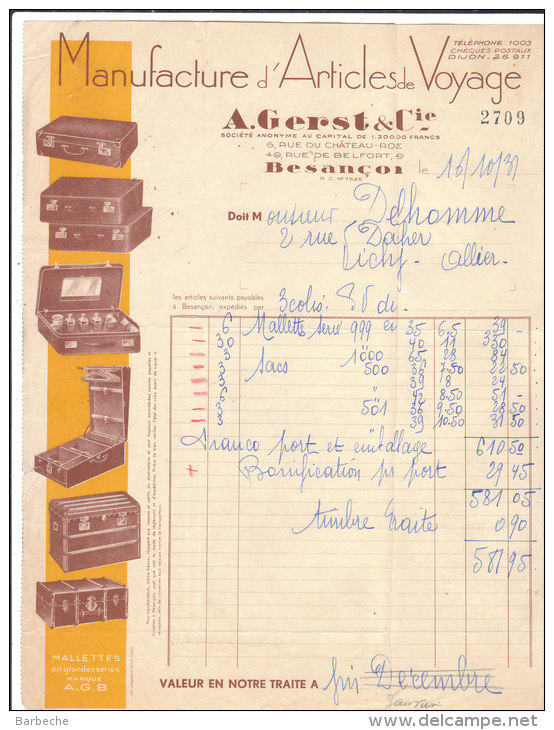 Manufacture d'Articles de Voyage
TÉLÉPHONE 1003
CHÈQUES POSTAUX
DIJON-26.911
A. Gerst & Cie
2709
SOCIÉTÉ ANONYME AU CAPITAL DE 1.300.00 FRANCS
6, RUE DU CHÂTEAU-ROZ
49, RUE DE BELFORT, 9
Besançon le 16/10/31
R. C. Nº 7625
Doit Monsieur Delhomme
2 rue Daher
Vichy - Allier.
les articles suivants payables
à Besançon, expédiés par 3 colis
6 Mallette Serie 999 en 35 6,5 39 -
30 40 11 330
3 Sacs 1000 65 28 84
3 500 36 7.50 22 50
3 39 8 24
6 " 42 8.50 51 -
3 501 36 9.50 28 50
3 39 10.50 31 50
Franco port et emballage 610 50
Bonification pr port 29 45
581 05
Timbre traite 0 90
581 95
MALLETTES
en grandes séries
MARQUE
A.G.B
VALEUR EN NOTRE TRAITE A fin Décembre
Janvier
Barbeche
delcampe.net